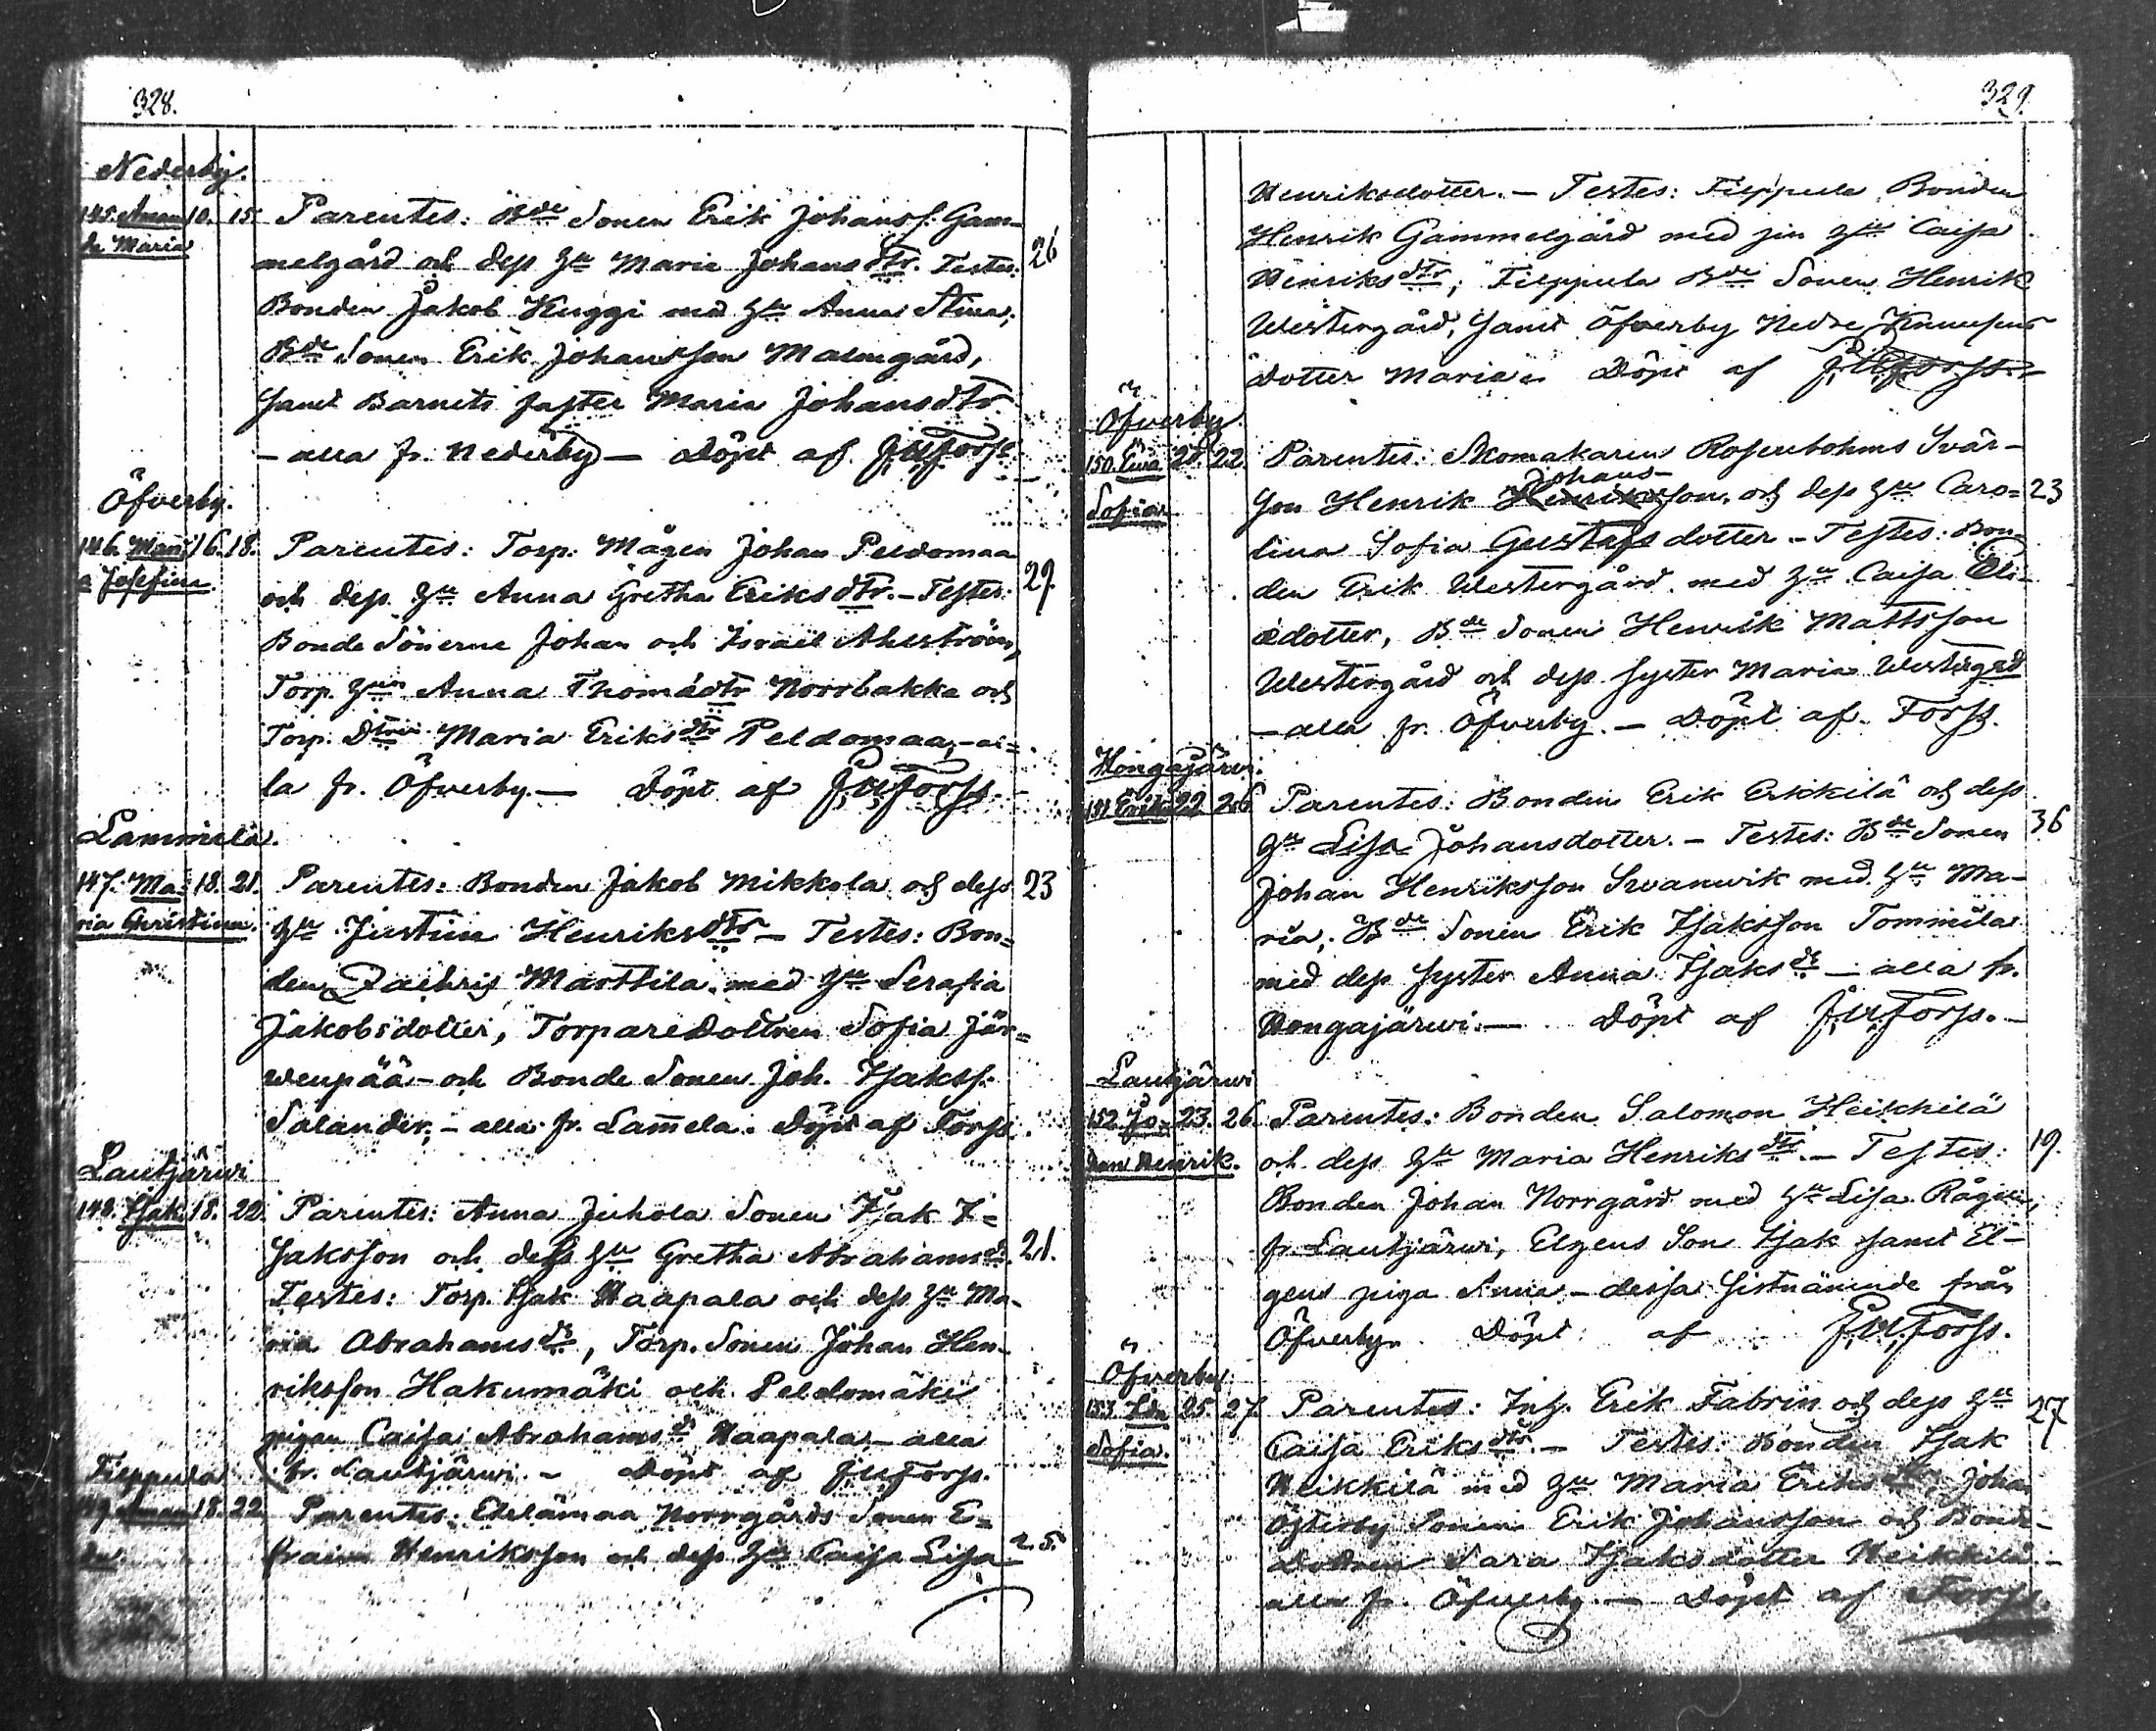 328.
Nederby.
145. Aman- 10. 15. Parentes: Bde Sonen Erik Johanss. Gam- 26
da Maria
melgård och dess Hu Maria Johansdtr. Testes:
Bonden Jakob Kuggi med Hu Anna Stina,
Bde Sonen Erik Johansson Malmgård,
samt Barnets faster Maria Johansdtr.
– alla fr. Nederby – Döpt af Forss.
Öfverby.
146. 16. 18. Parentes: Torp. Mågen Johan Peldomaa
a Josefina.
och dess Hu Anna Gretha Eriksdtr. – Testes: 29
Bonde Sönerne Johan och Israel Ahlström,
Torp. Hun Anna Thomasdtr Norrbakka och
Torp. Dtren Maria Eriksdtr Peldomaa, – al=
la fr. Öfverby. – Döpt af Forss.
Lammela.
147. Ma- 18. 21. Parentes: Bonden Jakob Mikkola och dess 23
ria Christina.
Hu Justina Henriksdtr – Testes: Bon=
den Zachris Marttila med Hu Serafia
Jakobsdotter, Torparedottren Sofia Jär=
wenpää – och Bonde Sonen Joh. Isakss.
Salander, – alla fr. Lam̄ela. Döpt af Forss.
Lautjärwi
148. Isak 18. 22. Parentes: Anna Juhola Sonen Isak I=
saksson och dess Hu Gretha Abrahamsd. 21.
Testes: Torp. Isak Haapala och dess Hu Ma-
ria Abrahamsdr, Torp. Sonen Johan Hen-
riksson Hakumäki och Peldomäki
pigan Caisa Abrahamsdr Haapala – alla
fr. Lautjärwi. – Döpt af Forss.
Filppula
149. Aman- 18. 22. Parentes: Norrgårds Sonen E=
da.
fraim Henriksson och dess Hu Caisa Lisa 25.
329.
Henriksdotter. – Testes: Filppula Bonden
Henrik Gammelgård med sin Hu Caisa
Henriksdtr, Filppula Bde Sonen Henrik
Westergård, samt Öfverby Nedre
dotter Maria. Döpt af Forss. –
Öfverby
150. Eva 20. 22. Parentes: Skomakaren Rosenbohms Svär-
Sofia.
Johans-
son Henrik Henriksson, och dess Hu Caro= 23
lina Sofia Gustafsdotter – Testes: Bon-
den Erik Westergård med Hu Caisa Eli-
dotter, Bde Sonen Henrik Mattsson
Westergård och dess syster Maria Westergrd
– alla fr. Öfverby. – Döpt af Forss.
Hongajärwi.
151. Erika 22. 26. Parentes: Bonden Erik Erkkilä och dess
Hu Lisa Johansdotter. – Testes: Bde Sonen 36
Johan Henriksson Swanwik med Hu Ma-
ria, Bde Sonen Erik Isaksson Tommila
med dess syster Anna Isaksdr – alla fr.
Hongajärwi. – Döpt af Forss. –
Lautjärwi
152. Jo- 23. 26. Parentes: Bonden Salomon Heikkilä
han Henrik.
och dess Hu Maria Henriksdtr. – Testes: 19.
Bonden Johan Norrgård med Hu Lisa
fr. Lautjärwi, Elgens Son Isak samt El-
gens piga Anna – dessa sistnämnde från
Öfverby. Döpt af Forss.
Öfverby
153. Ida 25. 27. Parentes: Inh. Erik Fabrin och dess Hu 27
Sofia.
Caisa Eriksdtr. – Testes: Bonden Isak
Heikkilä med Hu Maria Eriksdtr, Johan
Österby Sonen Erik Johansson och Bonde-
Dottren Sara Isaksdotter Heikkilä –
alla fr. Öfverby. – Döpt af Forss.